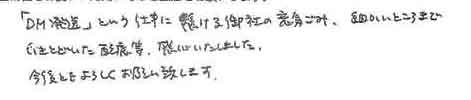 「DM発送」という仕事に懸ける御社の意気ごみ、細かいところまで
行きとどいた配慮等、感心いたしました。
今後ともよろしくお願い致します。